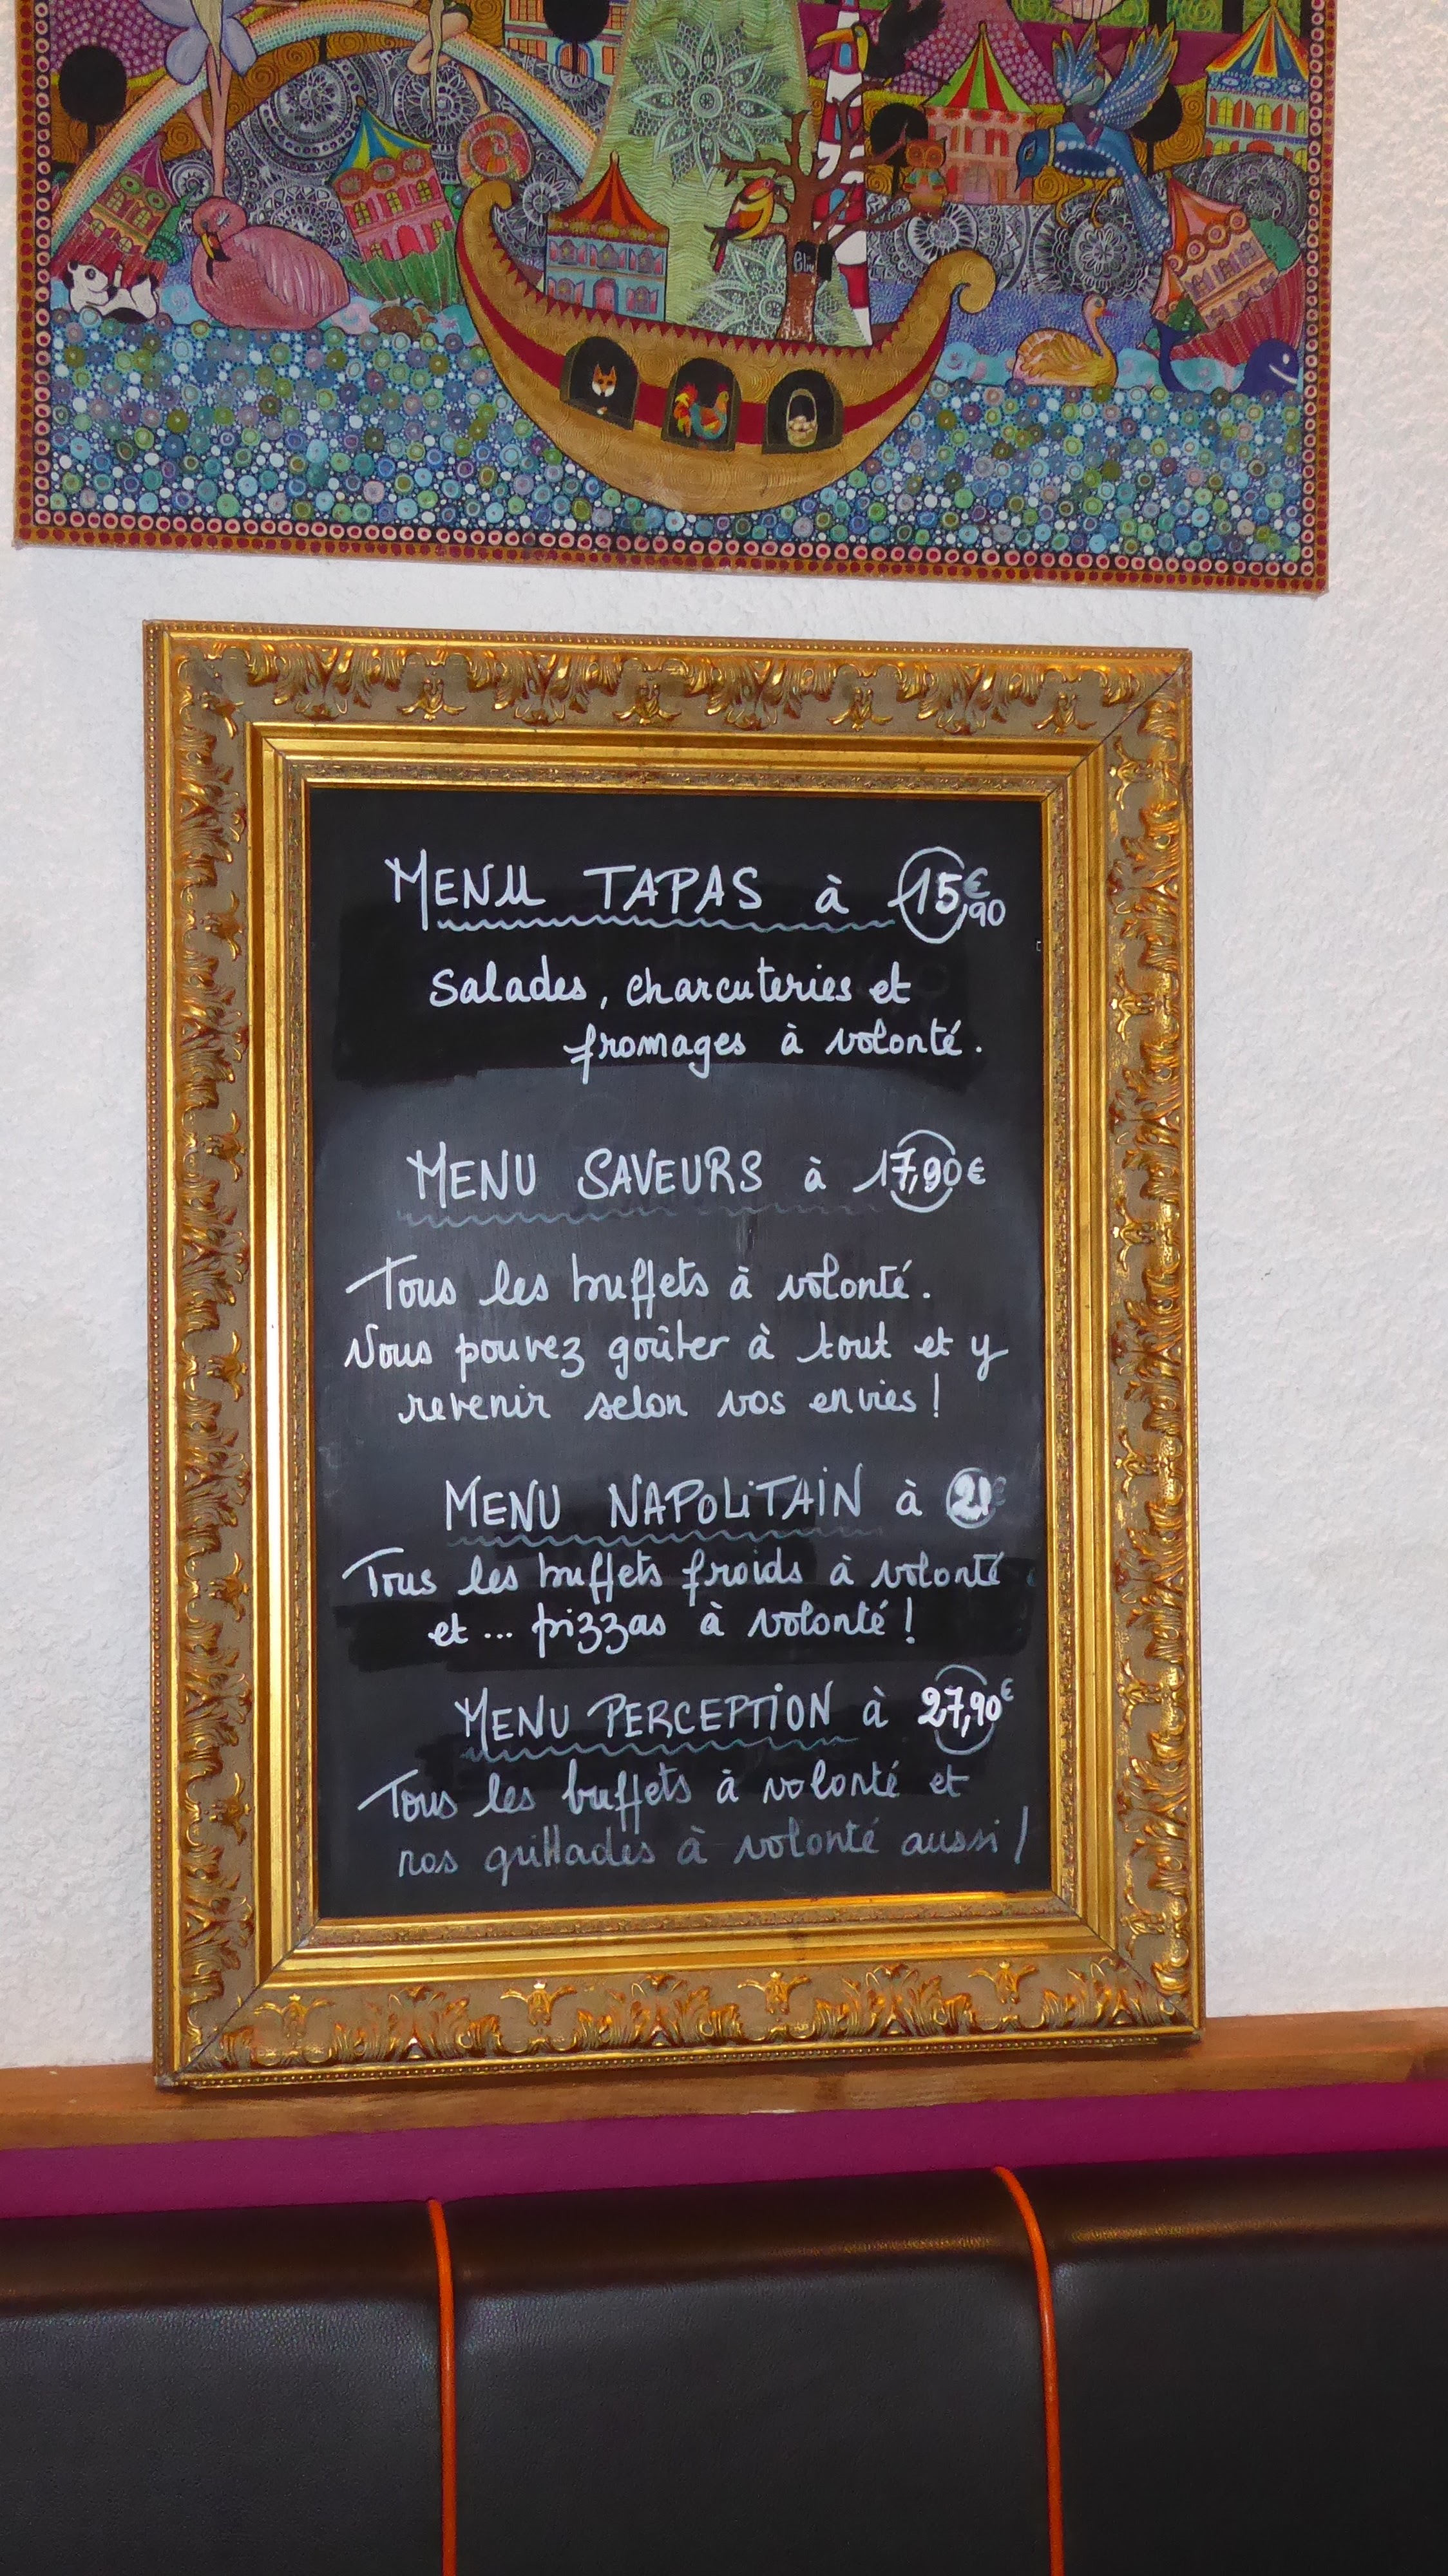 Elie
MENU TAPAS à 15€,90
Salades, charcuteries et
fromages à volonté.
MENU SAVEURS à 17,90€
Tous les buffets à volonté.
Vous pouvez goûter à tout et y
revenir selon vos envies !
MENU NAPOLITAIN à 21€
Tous les buffets froids à volonté
et ... pizzas à volonté !
MENU PERCEPTION à 27,90€
Tous les buffets à volonté et
nos grillades à volonté aussi !